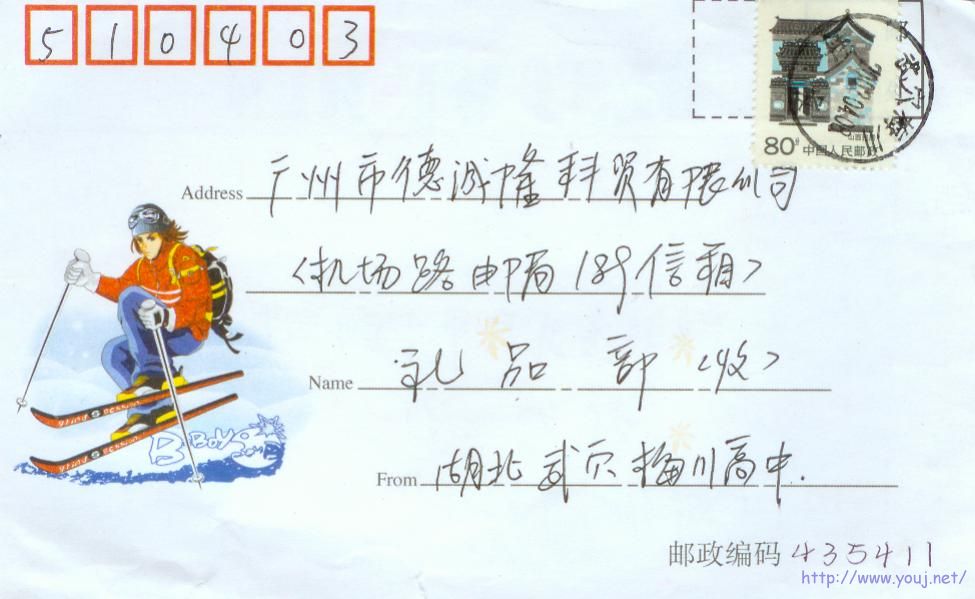 510403
80分 中国人民邮政
Address 广州市德诚隆科贸有限公司
(机场路邮局189信箱)
Name 礼品部(收)
From 湖北武穴梅川高中.
邮政编码 435411
http://www.youj.net/